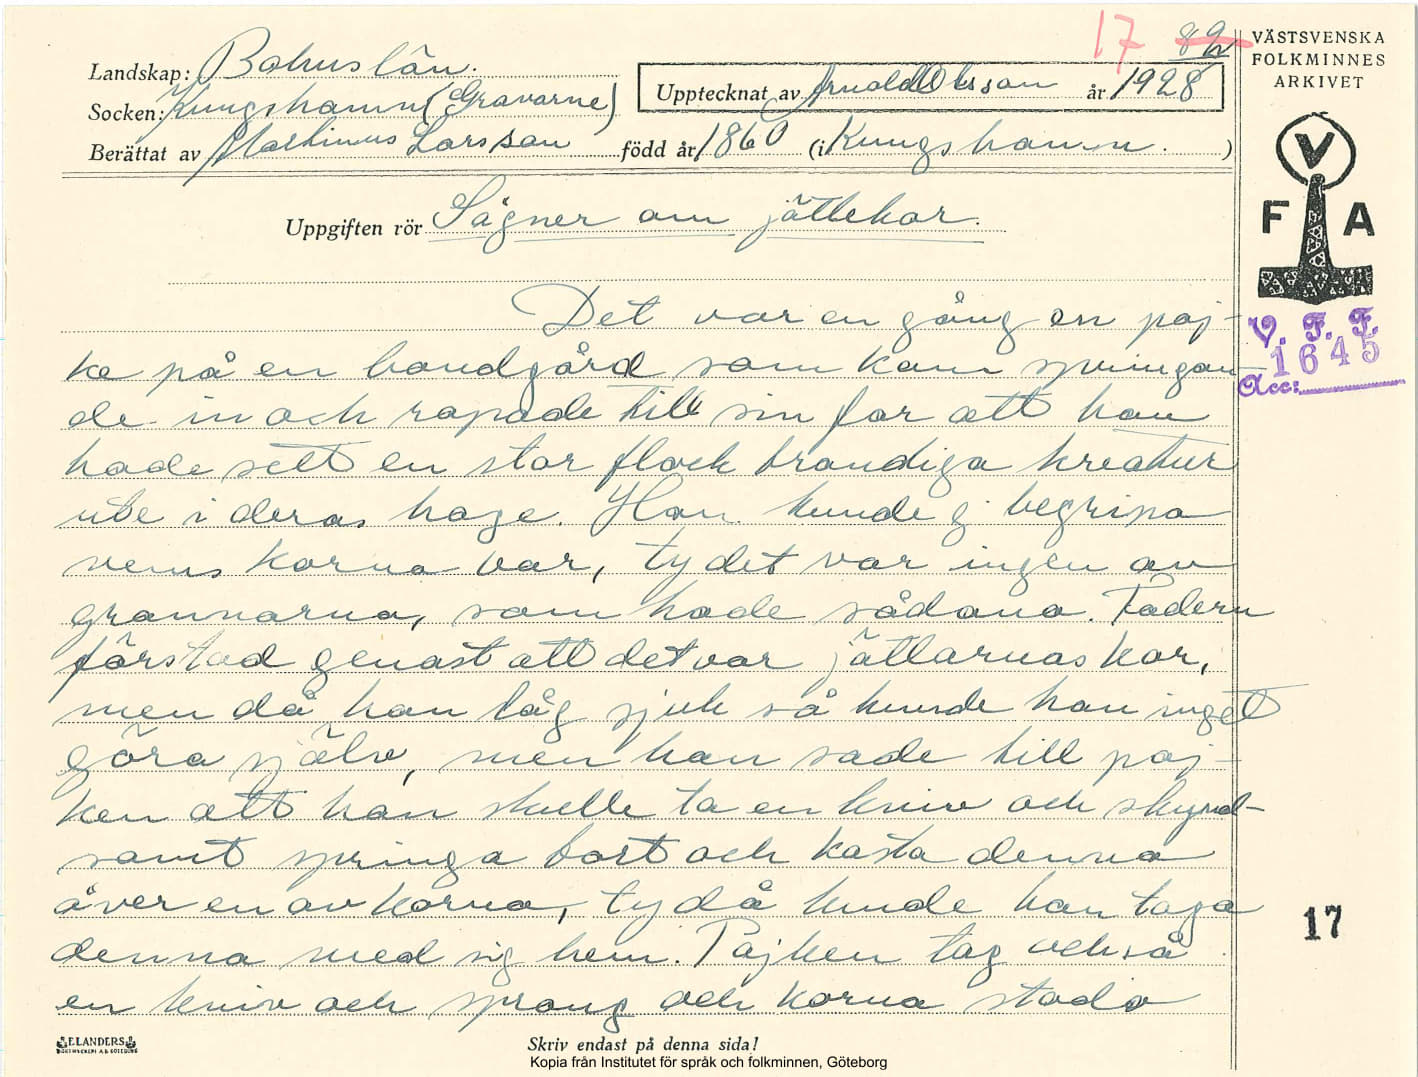 17 82
VÄSTSVENSKA
FOLKMINNES
ARKIVET
Landskap: Bohuslän.
Socken: Kungshamn (Gravarne)
Upptecknat av Arnold Olsson år 1928
Berättat av Martinus Larsson född år 1860 (i Kungshamn. )
Uppgiften rör Sägner om jättekor.
V
F A
V. F. F.
Acc: 1645
Det var en gång en poj-
ke på en bondgård som kom springan-
de in och ropade till sin far att han
hade sett en stor flock brandiga kreatur
ute i deras hage. Han kunde ej begripa
vems korna var, ty det var ingen av
grannarna, som hade sådana. Fadern
förstod genast att det var jättarnas kor,
men då han låg sjuk så kunde han inget
göra själv, men han sade till poj-
ken att han skulle ta en kniv och skynd-
samt springa bort och kasta denna
över en av korna, ty då kunde han taga
denna med sig hem. Pojken tog också
en kniv och sprang och korna stodo
17
ELANDERS
BOKTRYCKERI A.B. GÖTEBORG
Skriv endast på denna sida!
Kopia från Institutet för språk och folkminnen, Göteborg